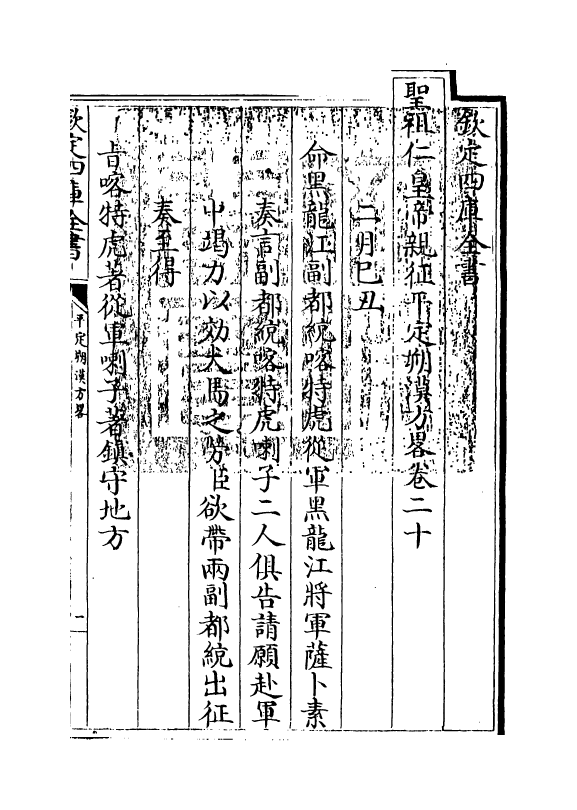 欽定四庫全書
聖祖仁皇帝親征平定朔漠方略卷二十
二月己丑
命黑龍江副都統喀特虎從軍黑龍江將軍薩卜素
奏言副都統喀特虎喇子二人俱告請願赴軍
中竭力以効犬馬之勞臣欲帶兩副都統出征
奏至得
旨喀特虎著從軍喇子著鎮守地方
欽定四庫全書
平定朔漠方略
一